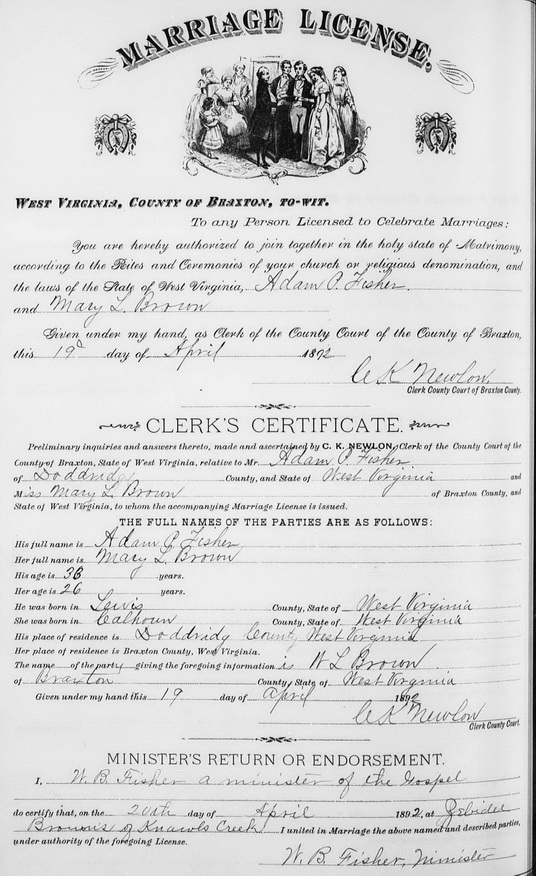 MARRIAGE LICENSE.
WEST VIRGINIA, COUNTY OF BRAXTON, TO-WIT.
To any Person Licensed to Celebrate Marriages:
You are hereby authorized to join together in the holy state of Matrimony,
according to the Rites and Ceremonies of your church or religious denomination, and
the laws of the State of West Virginia, Adam P. Fisher.
and Mary L. Brown
Given under my hand, as Clerk of the County Court of the County of Braxton,
this 19 day of April 1892
C K Newlon.
Clerk County Court of Braxton County.
CLERK'S CERTIFICATE.
Preliminary inquiries and answers thereto, made and ascertained by C. K. NEWLON, Clerk of the County Court of the
County of Braxton, State of West Virginia, relative to Mr. Adam P. Fisher
of Doddridg County, and State of West Virginia and
Miss Mary L. Brown of Braxton County, and
State of West Virginia, to whom the accompanying Marriage License is issued.
THE FULL NAMES OF THE PARTIES ARE AS FOLLOWS:
His full name is Adam P. Fisher
Her full name is Mary L. Brown
His age is 33 years.
Her age is 26 years.
He was born in Lewis County, State of West Virginia
She was born in Calhoun County, State of West Virginia
His place of residence is Doddridg County West Virginia
Her place of residence is Braxton County, West Virginia.
The name of the party giving the foregoing information is W L Brown
of Braxton County State of West Virginia
Given under my hand this 19 day of April 1892
C K Newlon
Clerk County Court.
MINISTER'S RETURN OR ENDORSEMENT.
I, W. B. Fisher a minister of the Gospel
do certify that, on the 20th day of April 1892, at Zebidee
Browns of Knawls Creek I united in Marriage the above named and described parties,
under authority of the foregoing License.
W. B. Fisher, Minister